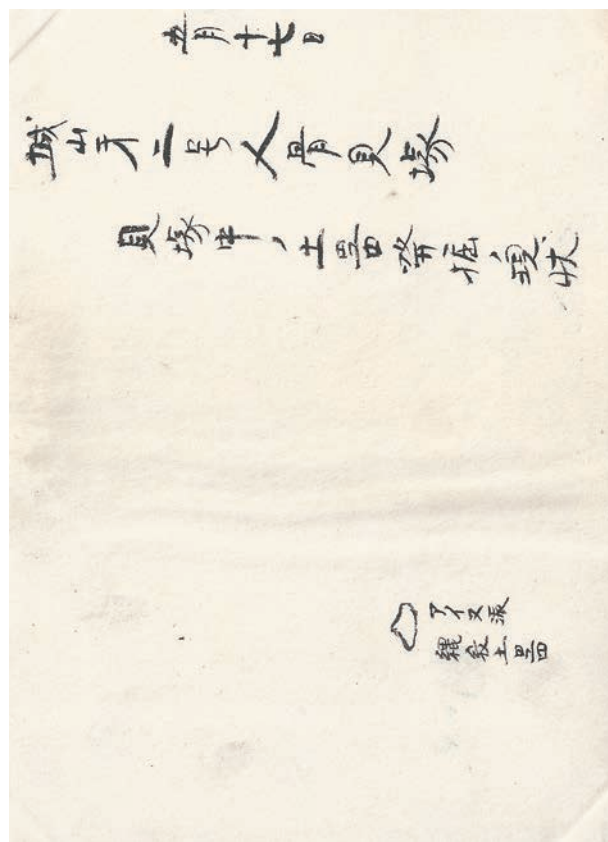 五月十七日
城山才二号人骨貝塚
貝塚中ノ土器発掘ノ現状
アイヌ派
縄紋土器